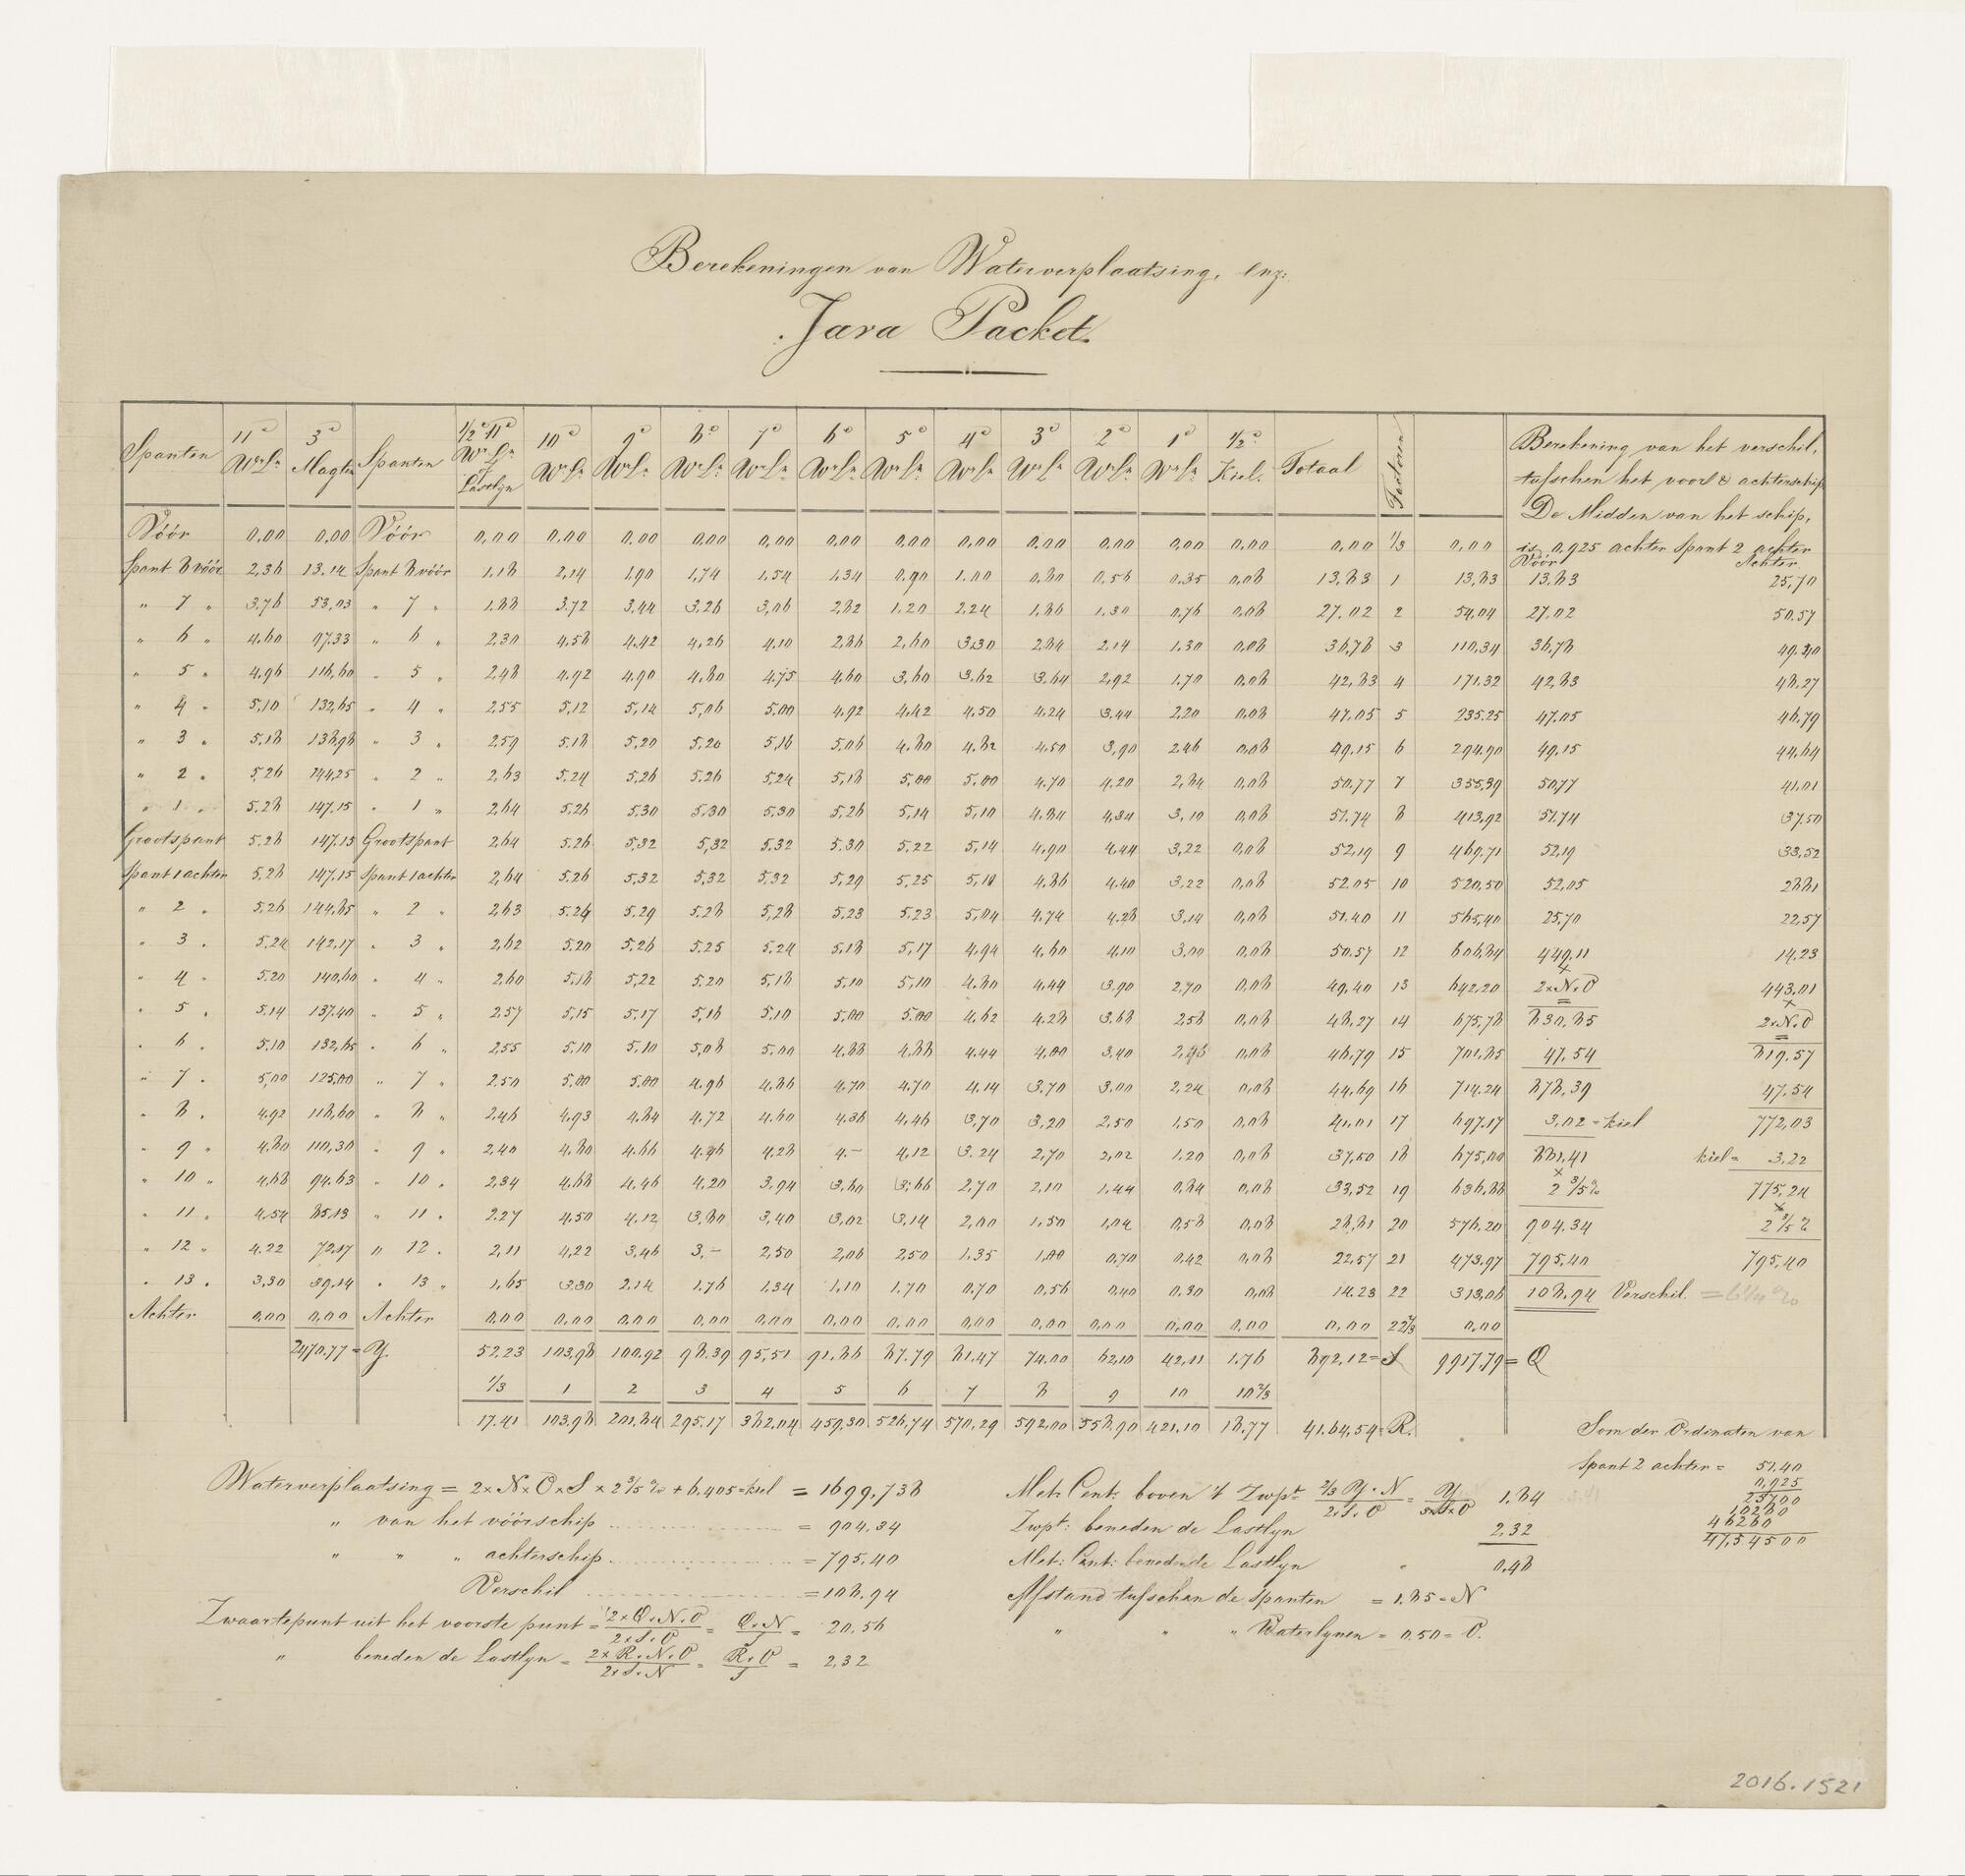 Berekeningen van Waterverplaatsing, enz:
Java Packet.
Spanten 11e WrLn 3e Magten Spanten 1/2e 11e WrLn of Lastlyn 10e WrLn 9e WrLn 8e WrLn 7e WrLn 6e WrLn 5e WrLn 4e WrLn 3e WrLn 2e WrLn 1e WrLn 1/2e Kiel. Totaal Factoren Berekening van het verschil, tusschen het voor & achterschip De Midden van het schip, is 0,925 achter Spant 2 achter
Vóór 0,00 0,00 Vóór 0,00 0,00 0,00 0,00 0,00 0,00 0,00 0,00 0,00 0,00 0,00 0,00 0,00 1/3 0,00 Vóór Achter
Spant 8 vóór 2,36 13,14 Spant 8 vóór 1,18 2,14 1,90 1,74 1,54 1,34 0,90 1,00 0,80 0,56 0,35 0,08 13,83 1 13,83 13,83 25,70
" 7 " 3,76 53,03 " 7 " 1,88 3,72 3,44 3,26 3,06 2,82 1,20 2,24 1,86 1,30 0,76 0,08 27,02 2 54,04 27,02 50,57
" 6 " 4,60 97,33 " 6 " 2,30 4,58 4,42 4,26 4,10 2,86 2,60 3,30 2,84 2,14 1,30 0,08 36,78 3 110,34 36,78 49,40
" 5 " 4,96 116,60 " 5 " 2,48 4,92 4,90 4,80 4,75 4,60 3,60 3,62 3,64 2,92 1,70 0,08 42,83 4 171,32 42,83 48,27
" 4 " 5,10 132,65 " 4 " 2,55 5,12 5,14 5,06 5,00 4,92 4,42 4,50 4,24 3,44 2,20 0,08 47,05 5 235,25 47,05 46,79
" 3 " 5,18 138,98 " 3 " 2,59 5,18 5,20 5,20 5,16 5,06 4,80 4,82 4,50 3,90 2,46 0,08 49,15 6 294,90 49,15 44,64
" 2 " 5,26 144,25 " 2 " 2,63 5,24 5,26 5,26 5,24 5,18 5,00 5,00 4,70 4,20 2,84 0,08 50,77 7 355,39 50,77 41,01
" 1 " 5,28 147,15 " 1 " 2,64 5,26 5,30 5,30 5,30 5,26 5,14 5,10 4,84 4,34 3,10 0,08 51,74 8 413,92 51,74 37,50
Grootspant 5,28 147,15 Grootspant 2,64 5,26 5,32 5,32 5,32 5,30 5,22 5,14 4,90 4,44 3,22 0,08 52,19 9 469,71 52,19 33,52
Spant 1 achter 5,28 147,15 Spant 1 achter 2,64 5,26 5,32 5,32 5,32 5,29 5,25 5,10 4,86 4,40 3,22 0,08 52,05 10 520,50 52,05 28,81
" 2 " 5,26 144,85 " 2 " 2,63 5,24 5,29 5,28 5,28 5,23 5,23 5,04 4,74 4,28 3,14 0,08 51,40 11 565,40 25,70 22,57
" 3 " 5,24 142,17 " 3 " 2,62 5,20 5,26 5,25 5,24 5,18 5,17 4,94 4,60 4,10 3,00 0,08 50,57 12 606,84 449,11 14,23
" 4 " 5,20 140,60 " 4 " 2,60 5,18 5,22 5,20 5,18 5,10 5,10 4,80 4,44 3,90 2,70 0,08 49,40 13 642,20 × 2×N×O 443,01
" 5 " 5,14 137,40 " 5 " 2,57 5,15 5,17 5,16 5,10 5,00 5,00 4,62 4,28 3,68 2,58 0,08 48,27 14 675,78 830,85 × 2×N.O
" 6 " 5,10 132,65 " 6 " 2,55 5,10 5,10 5,08 5,00 4,88 4,88 4,44 4,00 3,40 2,46 0,08 46,79 15 701,85 47,54 819,57
" 7 " 5,00 125,00 " 7 " 2,50 5,00 5,00 4,96 4,86 4,70 4,70 4,14 3,70 3,00 2,24 0,08 44,69 16 714,24 878,39 47,54
" 8 " 4,92 118,60 " 8 " 2,46 4,93 4,84 4,72 4,60 4,36 4,46 3,70 3,20 2,50 1,50 0,08 41,01 17 697,17 3,02 = kiel 772,03
" 9 " 4,80 110,30 " 9 " 2,40 4,80 4,66 4,46 4,28 4,- 4,12 3,24 2,70 2,02 1,20 0,08 37,50 18 675,00 881,41 kiel = 3,22
" 10 " 4,68 94,63 " 10 " 2,34 4,68 4,46 4,20 3,94 3,60 3,66 2,70 2,10 1,44 0,84 0,08 33,52 19 636,88 × 2 3/5% 775,24
" 11 " 4,54 85,13 " 11 " 2,27 4,50 4,12 3,80 3,40 3,02 3,14 2,00 1,50 1,04 0,58 0,08 28,81 20 576,20 904,34 × 2 3/5%
" 12 " 4,22 72,17 " 12 " 2,11 4,22 3,46 3,- 2,50 2,06 2,50 1,35 1,00 0,70 0,42 0,08 22,57 21 473,97 795,40 795,40
" 13 " 3,30 39,14 " 13 " 1,65 3,30 2,14 1,76 1,34 1,10 1,70 0,70 0,56 0,40 0,30 0,08 14,23 22 313,06 108,94 Verschil = 6 1/4 %
Achter 0,00 0,00 Achter 0,00 0,00 0,00 0,00 0,00 0,00 0,00 0,00 0,00 0,00 0,00 0,00 0,00 22 1/3 0,00
2470,77 = Y. 52,23 103,98 100,92 98,39 95,51 91,86 87,79 81,47 74,00 62,10 42,11 1,76 892,12 = S 9917,79 = Q
1/3 1 2 3 4 5 6 7 8 9 10 10 2/3
17,41 103,98 201,84 295,17 382,04 459,30 526,74 570,29 592,00 558,90 421,10 18,77 41.64,54 = R.
Som der Ordinaten van
Spant 2 achter = 51,40
0,925
25700
10280
46260
47,54500
Waterverplaatsing = 2×N×O×S × 2 3/5 % + 6,405 = kiel = 1699,738
" van het vóórschip = 904,34
" " " achterschip = 795,40
Verschil = 108,94
Zwaartepunt uit het voorste punt = 2×Q×N.O / 2×S×O = Q×N / S = 20,56
" beneden de Lastlyn = 2×R×N×O / 2×S×N = R×O / S = 2,32
Met: Cent: boven 't Zwpt 2/3 Y×N / 2×S×O = Y / 3×S×O 1,84
Zwpt: beneden de Lastlyn 2,32
Met: Cent: beneden de Lastlyn " 0,48
Afstand tusschen de spanten = 1,85 = N
" " " Waterlynen = 0,50 = O.
2016.1521